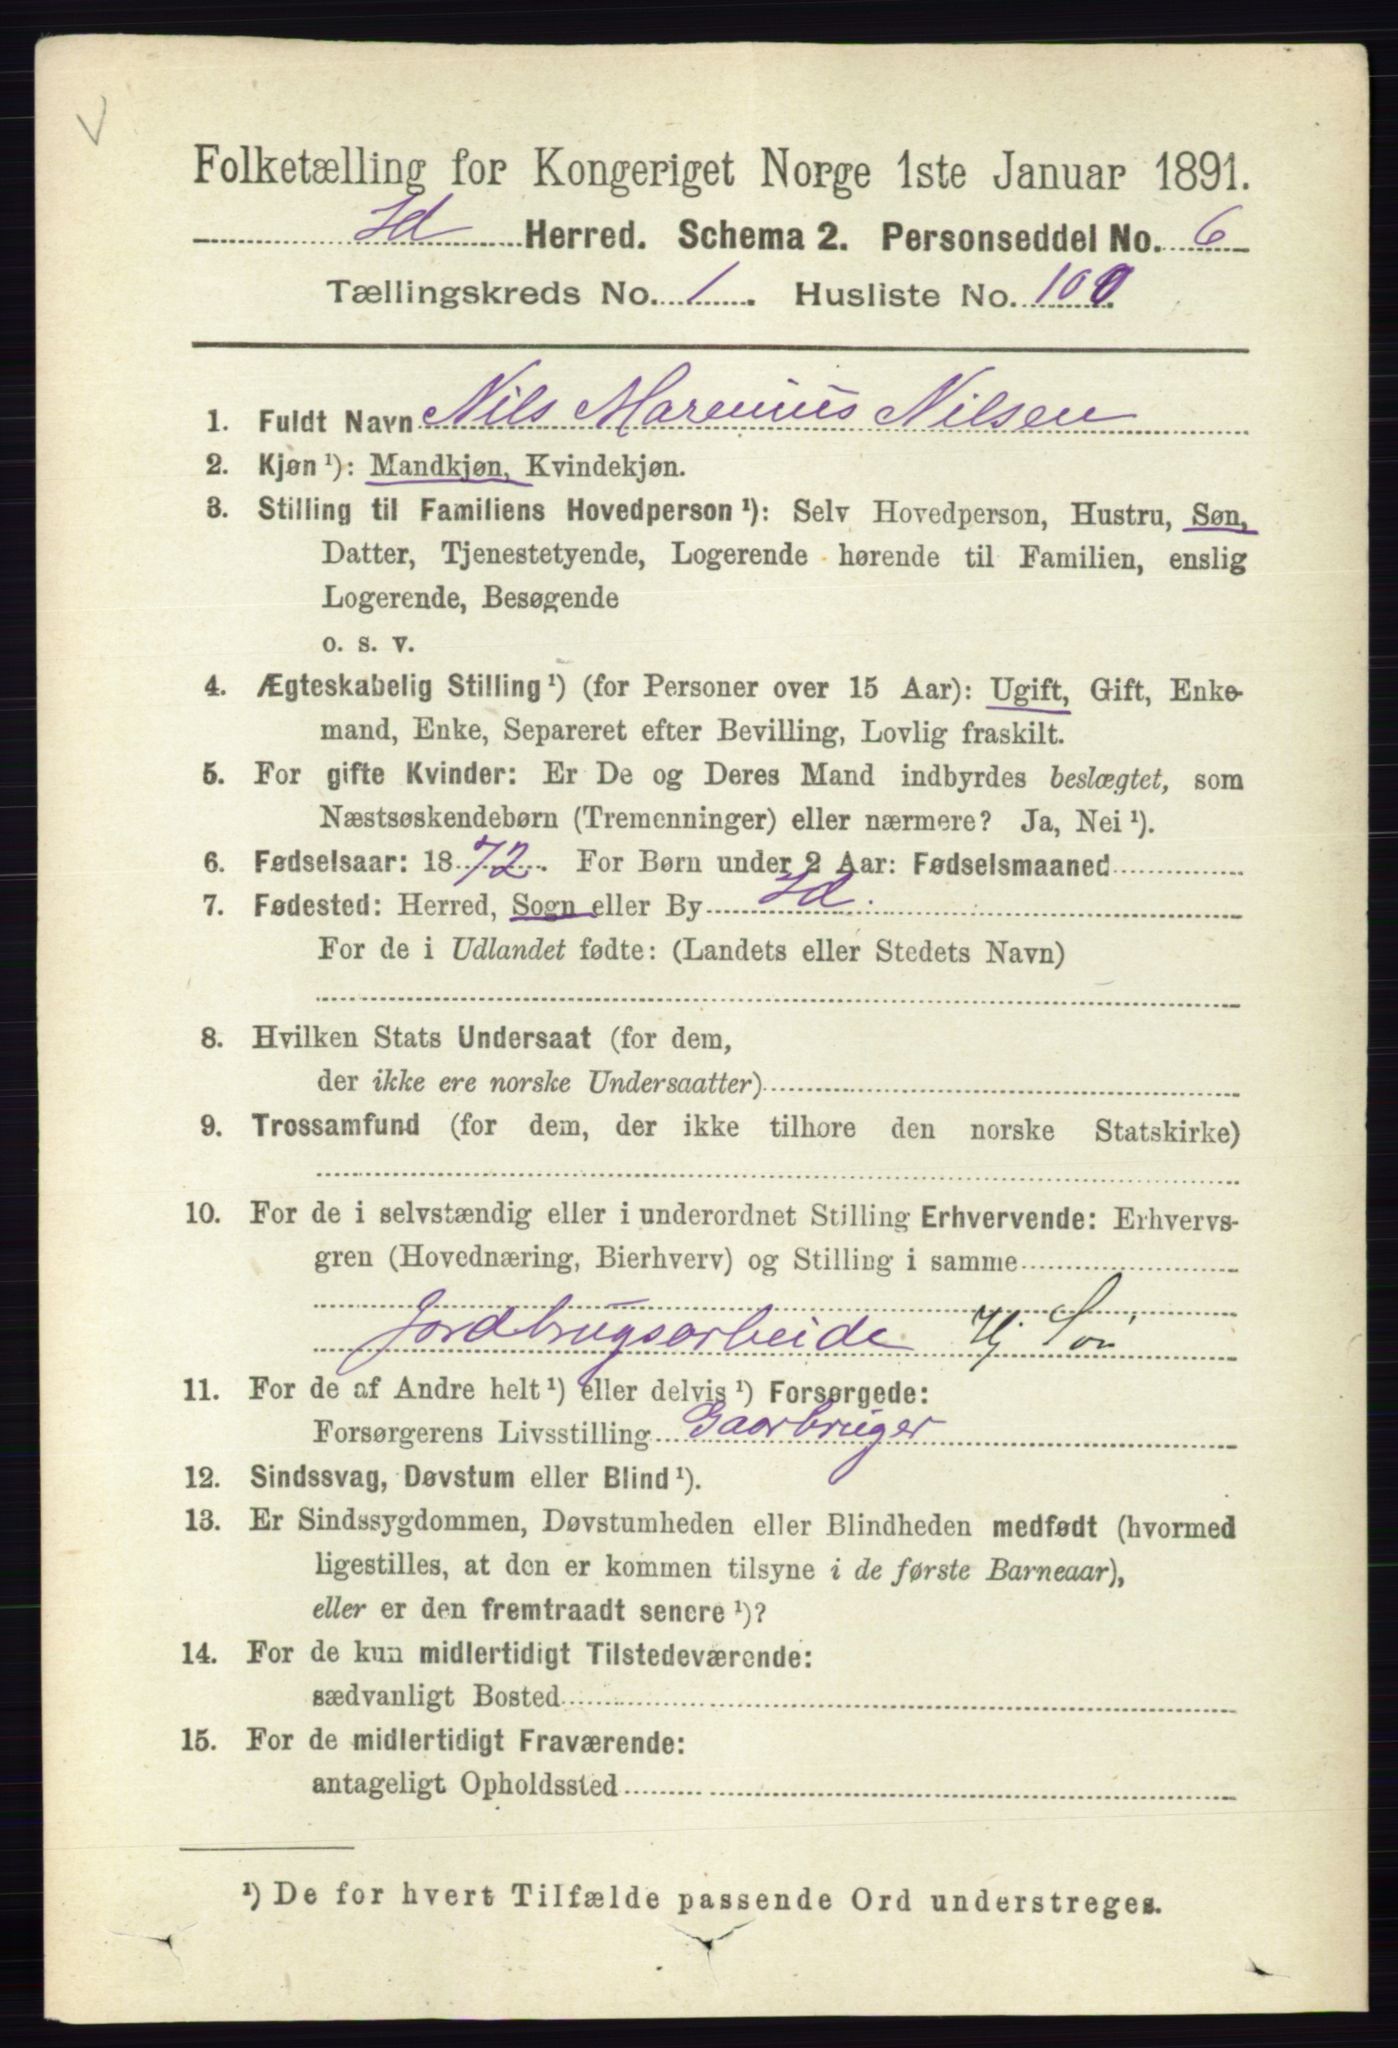 V
Folketælling for Kongeriget Norge 1ste Januar 1891.
Id Herred. Schema 2. Personseddel No. 6
Tællingskreds No. 1. Husliste No. 100
1. Fuldt Navn Nils Marenius Nilsen
2. Kjøn¹): Mandkjøn, Kvindekjøn.
3. Stilling til Familiens Hovedperson¹): Selv Hovedperson, Hustru, Søn,
Datter, Tjenestetyende, Logerende hørende til Familien, enslig
Logerende, Besøgende
o. s. v.
4. Ægteskabelig Stilling¹) (for Personer over 15 Aar): Ugift, Gift, Enke-
mand, Enke, Separeret efter Bevilling, Lovlig fraskilt.
5. For gifte Kvinder: Er De og Deres Mand indbyrdes beslægtet, som
Næstsøskendebørn (Tremenninger) eller nærmere? Ja, Nei¹).
6. Fødselsaar: 1872. For Børn under 2 Aar: Fødselsmaaned
7. Fødested: Herred, Sogn eller By Id.
For de i Udlandet fødte: (Landets eller Stedets Navn)
8. Hvilken Stats Undersaat (for dem,
der ikke ere norske Undersaatter)
9. Trossamfund (for dem, der ikke tilhøre den norske Statskirke)
10. For de i selvstændig eller i underordnet Stilling Erhvervende: Erhvervs-
gren (Hovednæring, Bierhverv) og Stilling i samme
Jordbrugsarbeide Hj. Søn
11. For de af Andre helt¹) eller delvis¹) Forsørgede:
Forsørgerens Livsstilling Gaarbruger
12. Sindssvag, Døvstum eller Blind¹).
13. Er Sindssygdommen, Døvstumheden eller Blindheden medfødt (hvormed
ligestilles, at den er kommen tilsyne i de første Barneaar),
eller er den fremtraadt senere¹)?
14. For de kun midlertidigt Tilstedeværende:
sædvanligt Bosted
15. For de midlertidigt Fraværende:
antageligt Opholdssted
¹) De for hvert Tilfælde passende Ord understreges.